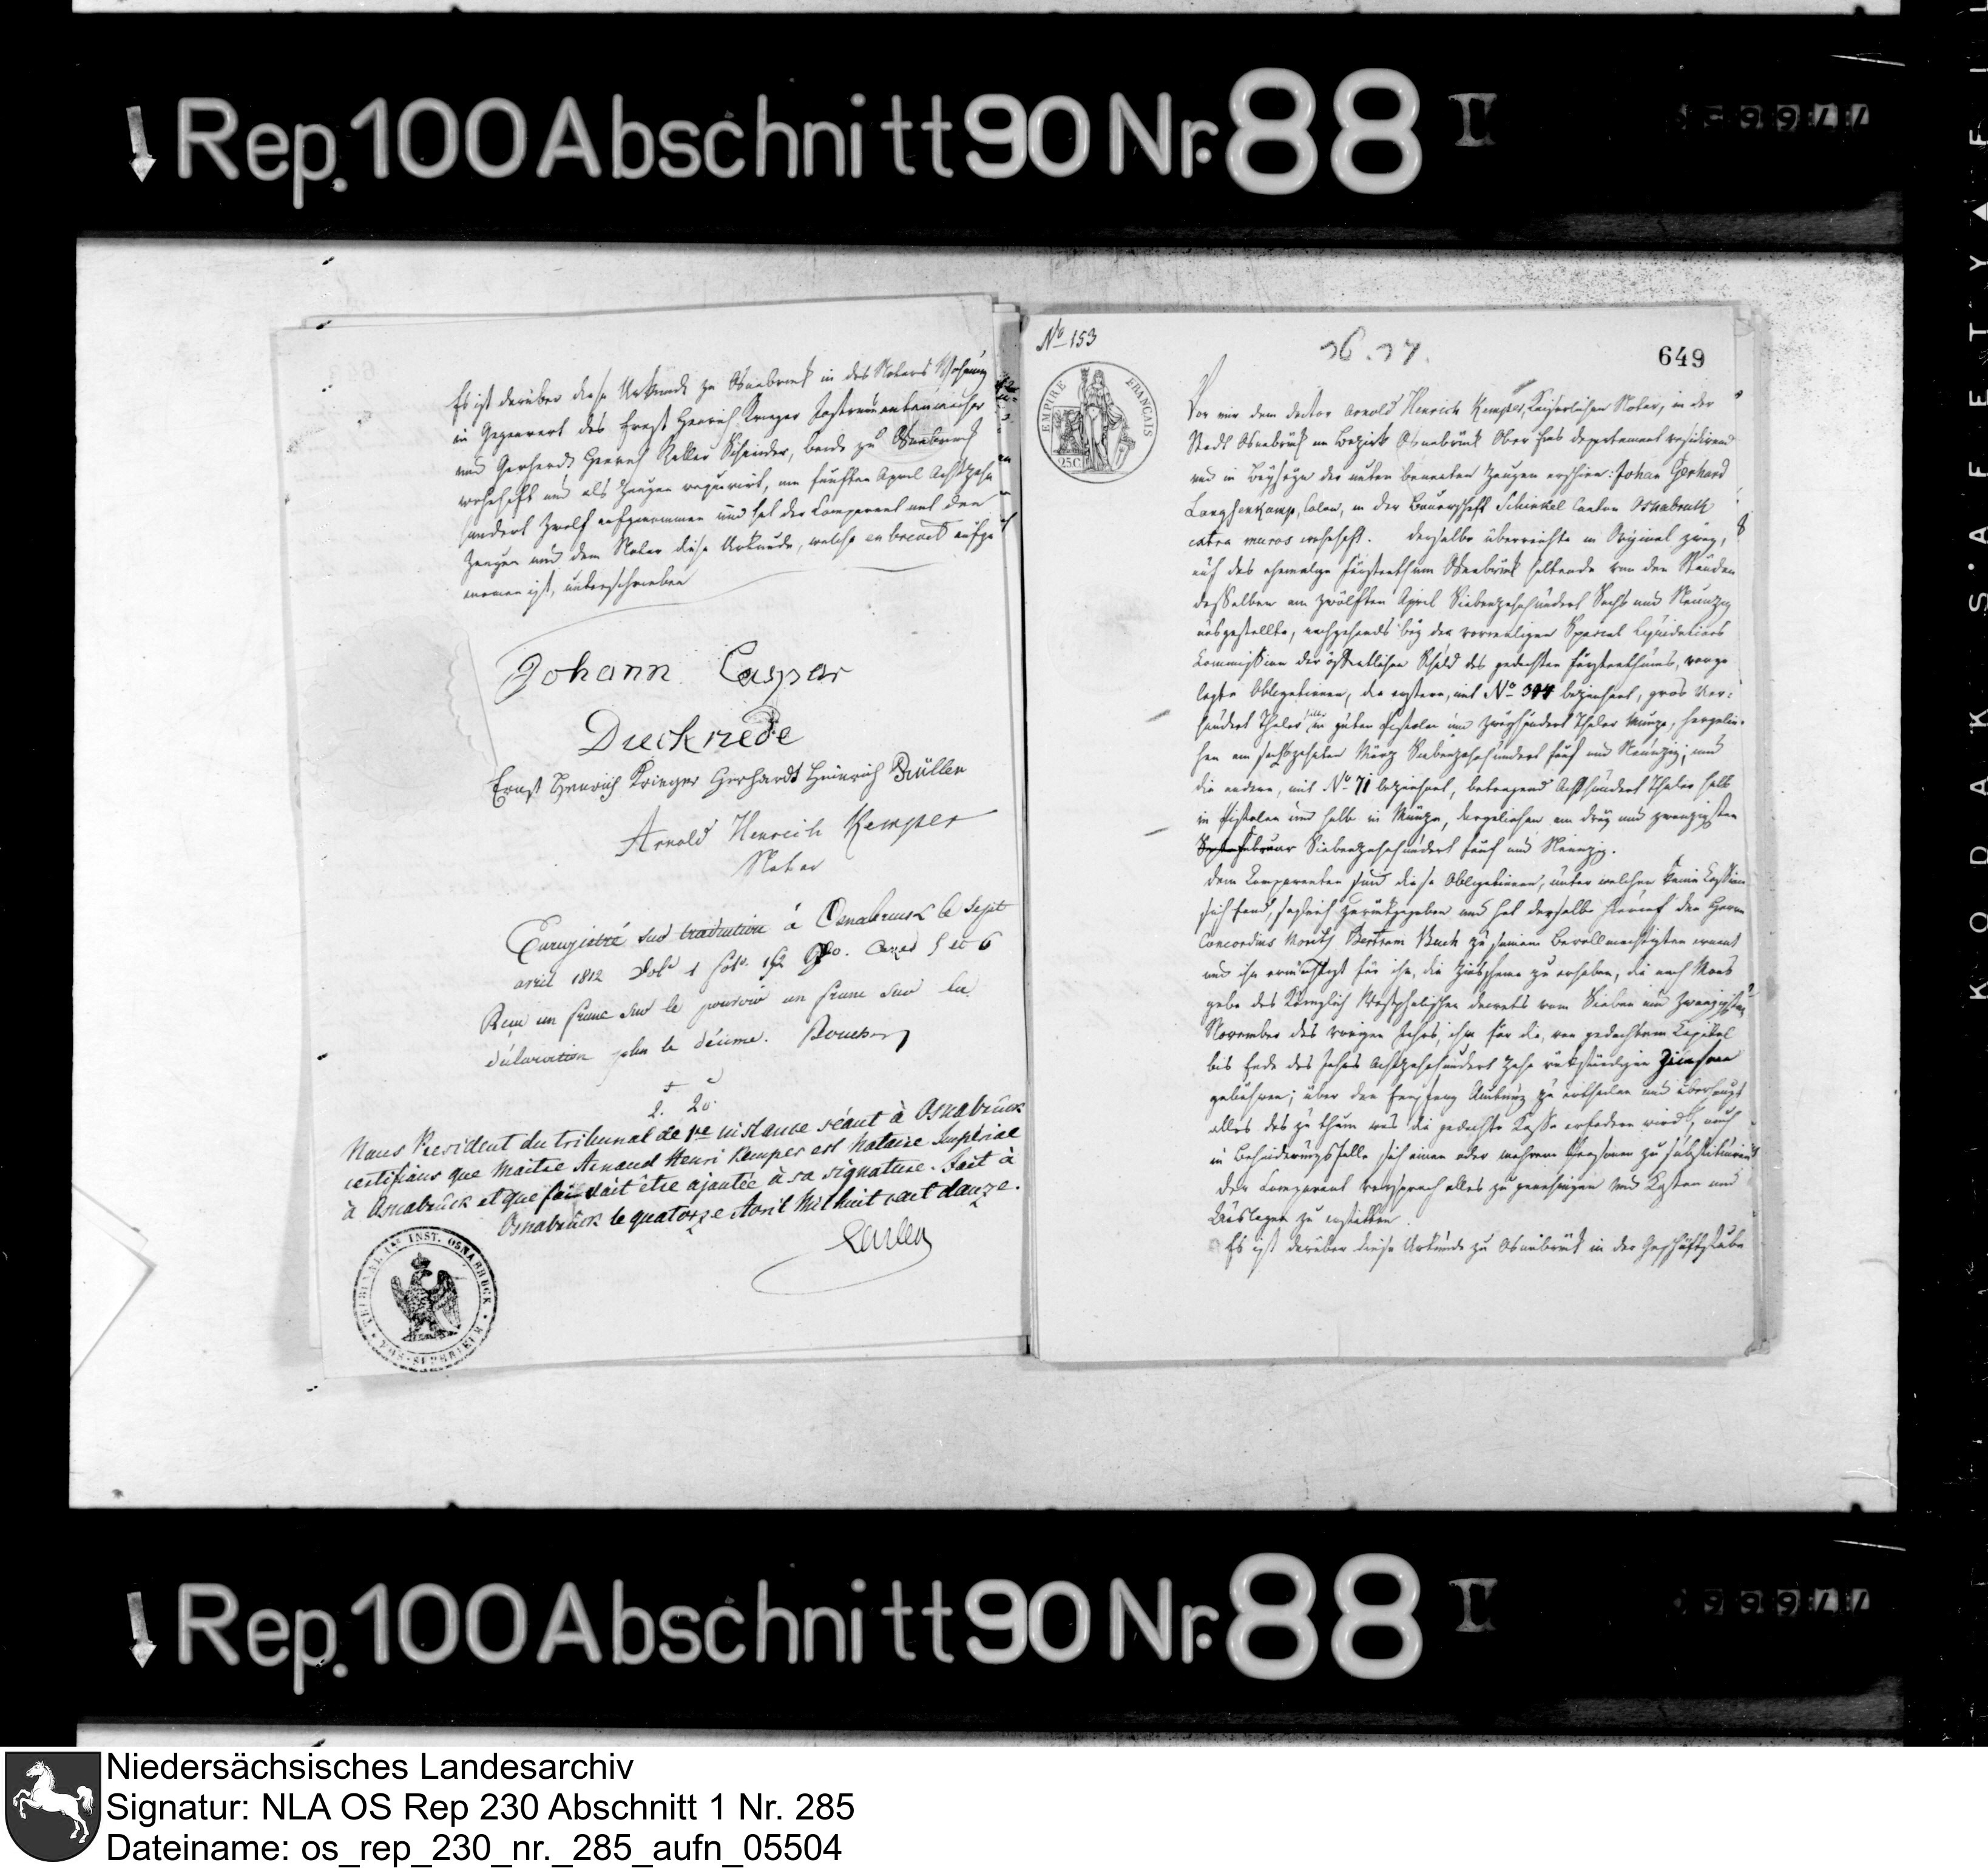 Rep. 100 Abschnitt 90 Nr. 88 I
Es ist darüber diese Urkunde zu Osnabrück in des Notars Wohnung
in Gegenwart des Ernst Henrich Krieger Instrumentenmacher
und Gerhardt Henrich Schneider, beide zu Osnabrück
wohnhaft und als Zeugen requirirt, am fünften April Achtzehn
hundert Zwölf aufgenommen und hat der Comparent mit den
Zeugen und dem Notar diese Urkunde, welche en brevet aufge
nommen ist, unterschrieben
Johann Caspar
Duckriede
Ernst Henrich Krieger Gerhardt Heinrich Brüllen
Arnold Henrich Kemper
Notar
Enregistré sur traduction à Osnabruck le Sept
avril 1812 Vol. 1 fol. 192 Cases 5 et 6
Reçu un franc sur le pouvoir un franc sur la
déclaration plus le décime.
2. 20.
Nous President du tribunal de 1re instance séant à Osnabrück
certifions que Maitre Arnaud Henri Kemper est Notaire Impérial
à Osnabrück et que foi doit être ajoutée à sa signature. Fait à
Osnabrück le quatorze Avril Mil huit cent douze.
TRIBUNAL 1re INST. OSNABRUCK
EMS-SUPERIEUR
No 153
36. 37.
649
EMPIRE FRANCAIS
25 C.
Vor mir dem doctor Arnold Henrich Kemper, Kaiserlichen Notar, in der
Stadt Osnabrück im Bezirk Osnabrück Ober Ems departement residirend
und in Beyseyn der unten benannten Zeugen erschien: Johan Gerhard
Langhenkamp, Colon, in der Bauerschaft Schinkel Canton Osnabruck
extra muros wohnhaft. derselbe überreichte in Original zwey,
auf das ehemalige Fürstenthum Osnabrück haltende von den Ständen
desselben am zwölften April Siebenzehnhundert Sechs und Neunzig
ausgestellte, nachgehends bey der vormaligen Special Liquidations
Kommission der öffentlichen Schuld des gedachten Fürstenthums, vorge
legte Obligationen, die erstere, mit No 344 bezeichnet, gros Vier-
hundert Thaler in guten Pistolen und zweyhundert Thaler Münze, hergelie-
hen am sechszehnten März Siebenzehnhundert fünf und Neunzig; und
die andere, mit No 71 bezeichnet, betragend Achthundert Thaler halb
in Pistolen und halb in Münze, dargeliehen am drey und zwanzigsten
Februar Siebenzehnhundert fünf und Neunzig.
dem Comparenten sind diese Obligationen, unter welchen keine Cession
sich fand, sogleich zurückgegeben und hat derselbe hierauf den Herrn
Concordius Moritz Bertram Buch zu seinem Bevollmächtigten ernannt
und ihn ermächtigt für ihn, die Zinsscheine zu erheben, die nach Maas
gabe des Königlich Westphälischen Decrets vom Sieben und Zwanzigsten
November des vorigen Jahrs, ihm für die, von gedachtem Capital
bis Ende des Jahrs Achtzehnhundert Zehn rückständigen Zinsen
gebühren; über den Empfang Quitung zu ertheilen und überhaupt
alles das zu thun was die gedachte Kasse erfodern wird, auch
in Behinderungsfalle sich einen oder mehrere Personen zu substituiren
der Comparent versprach alles zu genehmigen und Kosten und
Auslagen zu erstatten.
Es ist darüber diese Urkunde zu Osnabrück in der Geschäftsstube
Rep. 100 Abschnitt 90 Nr. 88 I
KODAK SAFETY
Niedersächsisches Landesarchiv
Signatur: NLA OS Rep 230 Abschnitt 1 Nr. 285
Dateiname: os_rep_230_nr._285_aufn_05504